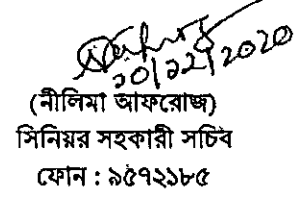 ২০/১২/২০২০
(নীলিমা আফরোজ)
সিনিয়র সহকারী সচিব
ফোন : ৯৫৭২১৮৫